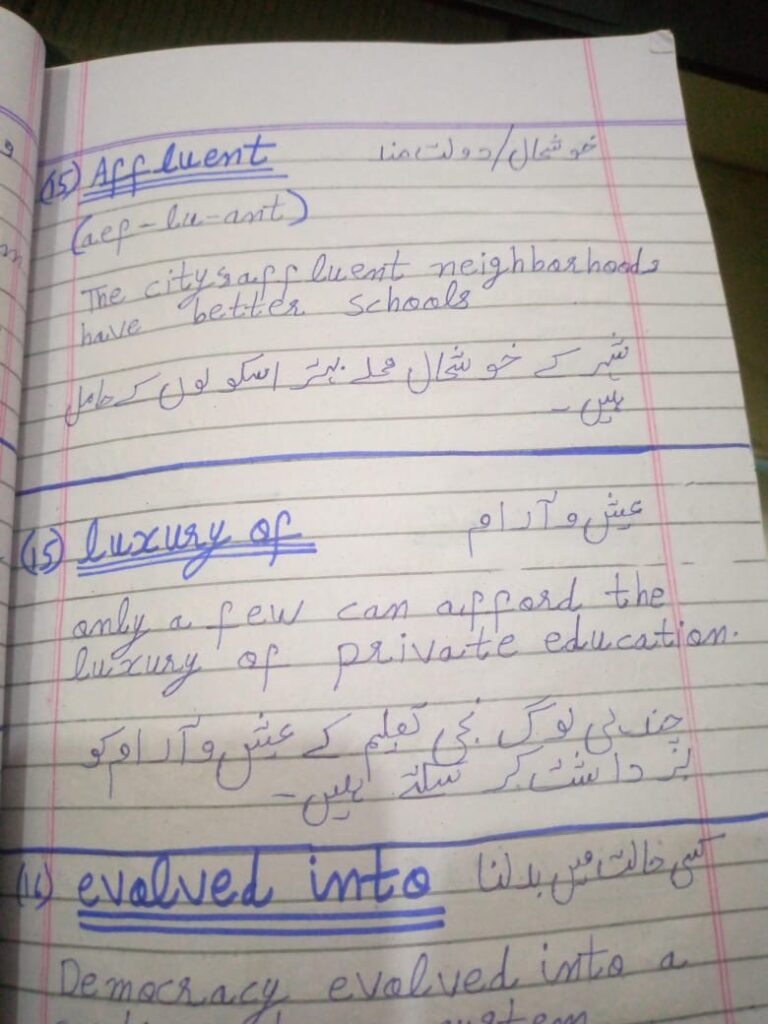 (15) Affluent خوشحال/دولت مند
(aef-lu-ant)
The city's affluent neighborhoods
have better schools
شہر کے خوشحال محلے بہتر اسکولوں کے حامل
ہیں۔
(15) luxury of عیش و آرام
only a few can afford the
luxury of private education.
چند ہی لوگ نجی تعلیم کے عیش و آرام کو
برداشت کر سکتے ہیں۔
(16) evolved into کسی حالت میں بدلنا
Democracy evolved into a
system